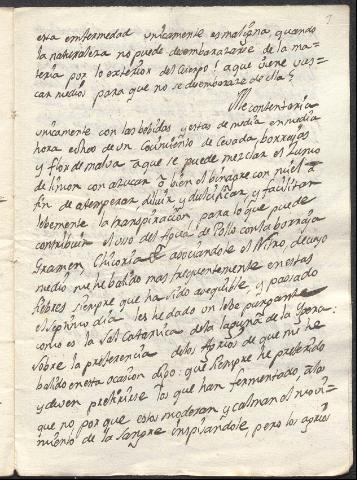 7
esta emfermedad unicamente es maligna, quando
la naturaleza no puede desembarazarse de la ma-
teria por lo exterior del cuerpo! aque viene bus-
car medios para que no se desembaraze de ella?
Me contentaria
unicamente con las bebidas y estas de media en media
hora echas de un Cocimiento de Cevada, borrajas
y flor de malva aque se puede mezclar el zumo
de limon con azucar ò bien el binagre con miel à
fin de atemperar, diluir y dulcificar, y facilitar
lebemente la transpiracion, para lo que puede
contribuir el uso del Agua de Pollo con la borraja
Gramen, Chicoria asociandole el Nitro, de cuyo
medio me he balido mas frequentemente en estas
fiebres siempre que ha sido asequible, y pasado
el septimo dia les he dado un lebe purgante
como es la Sal Catartica de la laguna de la
Sobre la preferencia de los Agrios de que me he
balido en esta ocasion digo: que siempre he preferido
y deven preferirse los que han fermentado, alos
que no, por que estos moderan y calman el movi-
miento de la sangre inspisandole, pero los agrios